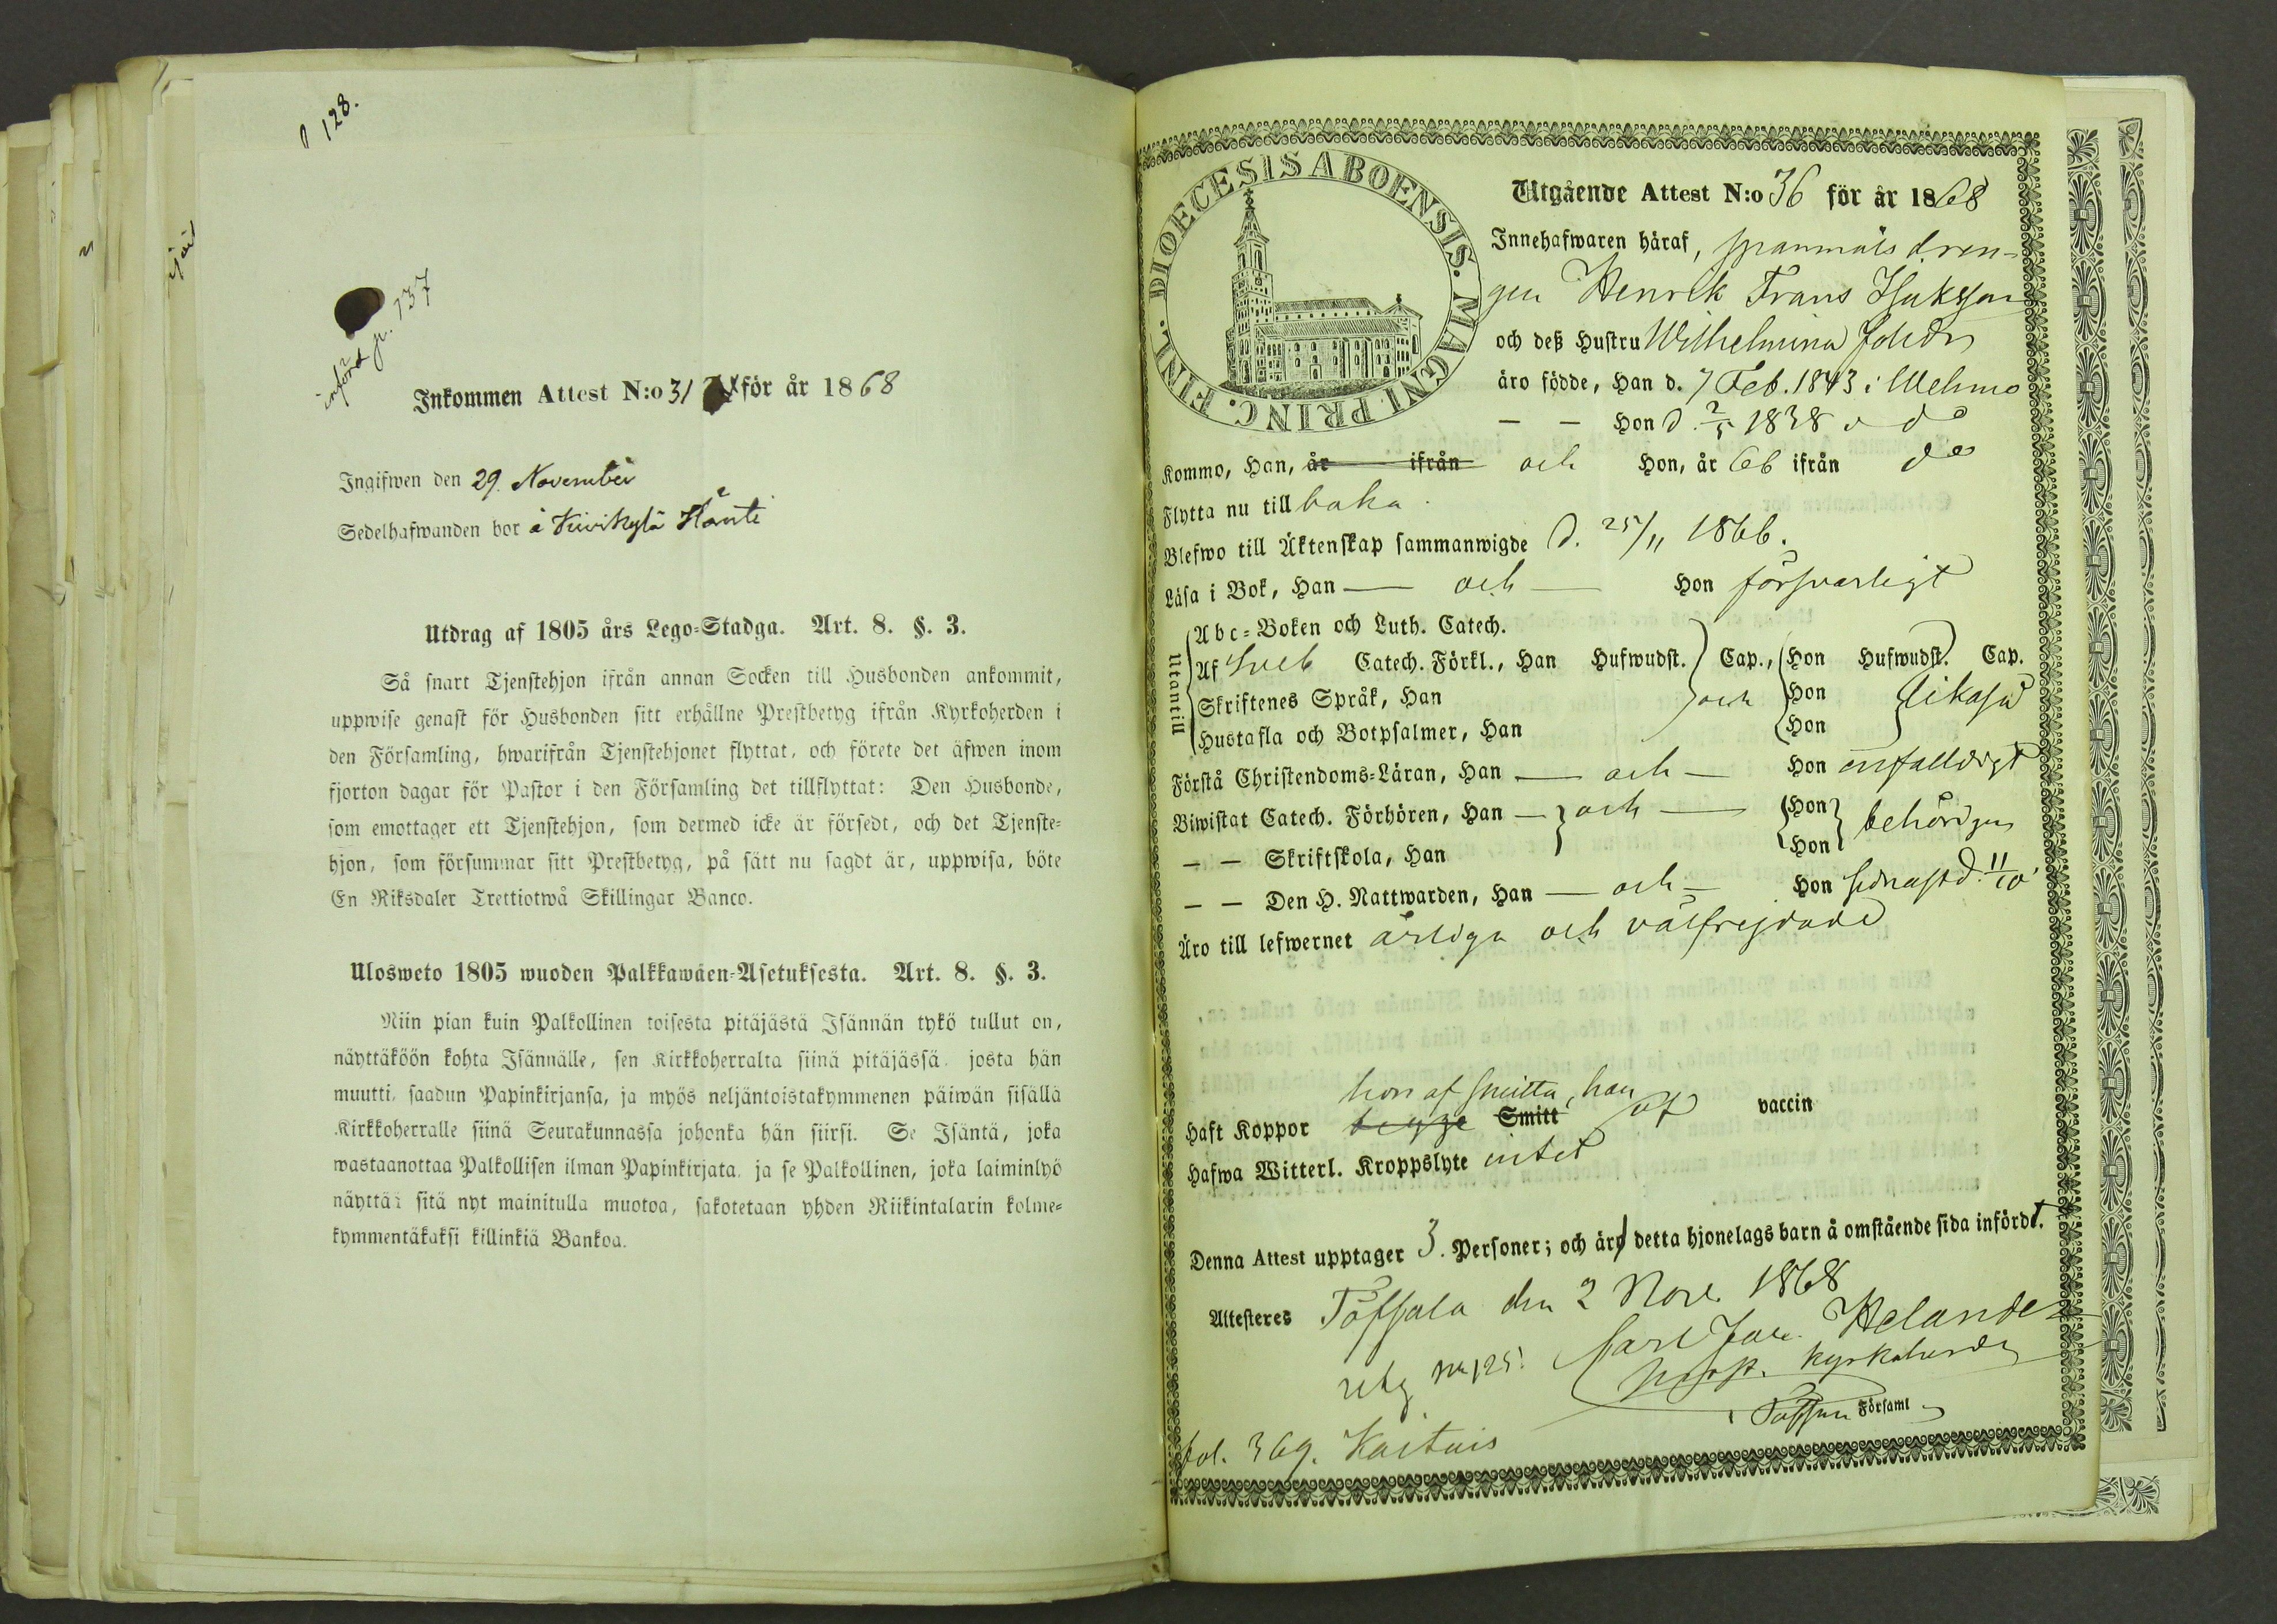 p 128.
införd p. 137
Inkommen Attest N:o 31 för år 1868
Ingifwen den 29. November
Sedelhafwanden bor å Kivikylä Hånti
Utdrag af 1805 års Lego-Stadga. Art. 8. §. 3.
Så snart Tjenstehjon ifrån annan Socken till Husbonden ankommit,
uppwise genast för Husbonden sitt erhållne Prestbetyg ifrån Kyrkoherden i
den Församling, hwarifrån Tjenstehjonet flyttat, och förete det äfwen inom
fjorton dagar för Pastor i den Församling det tillflyttat: Den Husbonde,
som emottager ett Tjenstehjon, som dermed icke är försedt, och det Tjenste-
hjon, som försummar sitt Prestbetyg, på sätt nu sagdt är, uppwisa, böte
En Riksdaler Trettiotwå Skillingar Banco.
Ulosweto 1805 wuoden Palkkawäen-Asetuksesta. Art. 8. §. 3.
Niin pian kuin Palkollinen toisesta pitäjästä Isännän tykö tullut on,
näyttäköön kohta Isännälle, sen Kirkkoherralta siinä pitäjässä, josta hän
muutti, saadun Papinkirjansa, ja myös neljäntoistakymmenen päiwän sisällä
Kirkkoherralle siinä Seurakunnassa johonka hän siirsi. Se Isäntä, joka
wastaanottaa Palkollisen ilman Papinkirjata, ja se Palkollinen, joka laiminlyö
näyttää sitä nyt mainitulla muotoa, sakotetaan yhden Riikintalarin kolme-
kymmentäkaksi killinkiä Bankoa.
DIOECESIS ABOENSIS. MAGNI PRINC. FINL.
Utgående Attest N:o 36 för år 1868
Innehafwaren häraf, spanmåls dren-
gen Henrik Frans Isaksson
och deß Hustru Wilhelmina Johdr
äro födde, Han d. 7 Feb. 1843 i Wehmo
— — Hon d. 2/5 1838 i do
Kommo, Han, år ifrån och Hon, år 66 ifrån do
Flytta nu till baka.
Blefwo till Äktenskap sammanwigde d. 25/11 1866.
Läsa i Bok, Han — och — Hon försvarligt
Utantill
Abc-Boken och Luth. Catech.
Af Sveb Catech. Förkl., Han Hufwudst. Cap., Hon Hufwudst. Cap.
Skriftenes Språk, Han och Hon likaså
Hustafla och Botpsalmer, Han Hon
Förstå Christendoms-Läran, Han — och — Hon enfalldigt
Biwistat Catech. Förhören, Han — och — Hon behörigen
— — Skriftskola, Han Hon
— — Den H. Nattwarden, Han — och — Hon sednast d. 11/10
Äro till lefwernet ärliga och välfrejdade
hon af smitta, han
Haft Koppor begge Smitt af vaccin
Hafwa Witterl. Kroppslyte intet
Denna Attest upptager 3. Personer; och äro detta hjonelags barn å omstående sida infördt.
Attesteres Töfsala den 2 Nov. 1868
Carl Jac. Helander
Prost. Kyrkoherde
i Töfsala Församl
fol. 369. Kaituis